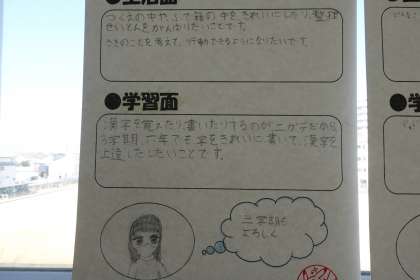 ●生活面
つくえの中や、ふで箱の中をきれいにしたり、整理
せいとんをがんばりたいことです。
さきのことを考えて、行動できるようになりたいです。
●学習面
漢字を覚えたり書いたりするのがニガテだから
3学期、六年でも字をきれいに書いて、漢字を
上達したいことです。
三学期も
よろしく